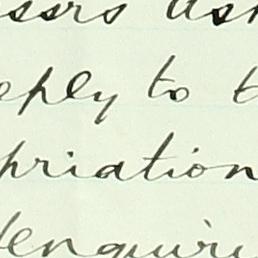 ssrs as
eply to t
priation
enquiri